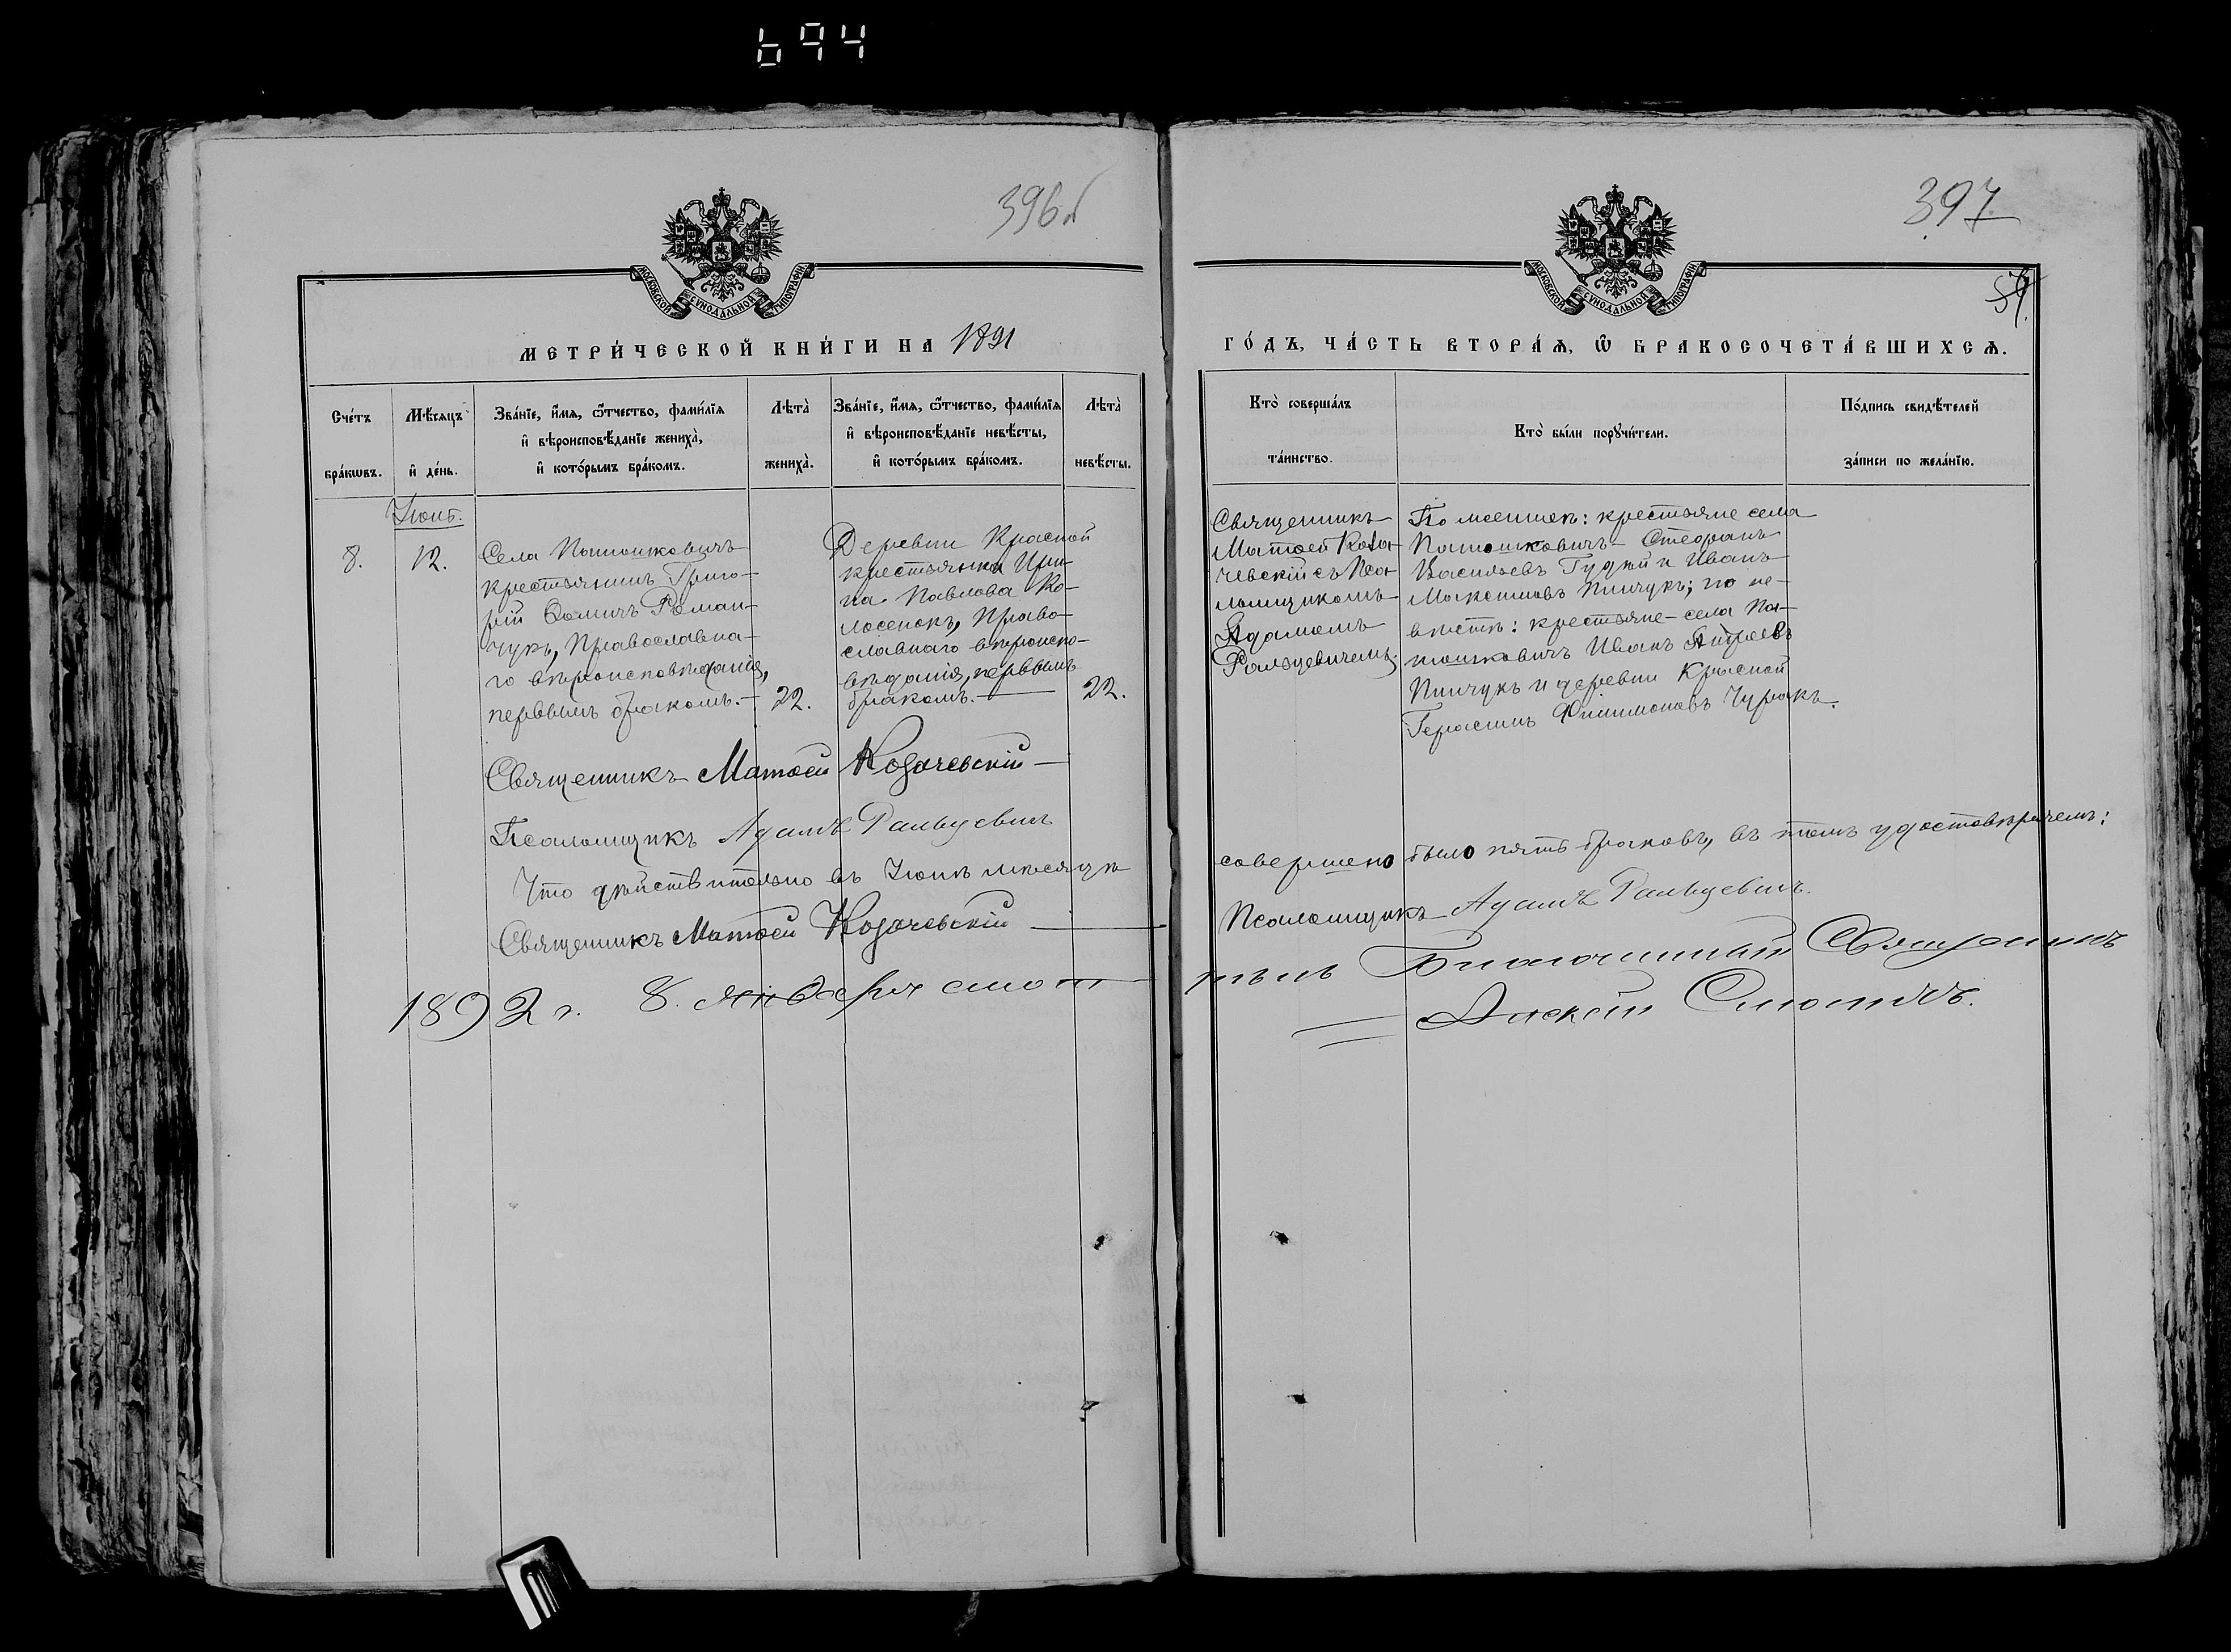 694
396об
397
57
МОСКОВСКОЙ СУНОДАЛЬНОЙ ТИПОГРАФІИ
МОСКОВСКОЙ СУНОДАЛЬНОЙ ТИПОГРАФІИ
МЕТРИ́ЧЕСКОЙ КНИ́ГИ НА 1891
ГО́ДЪ, ЧА́СТЬ ВТОРА́Ѧ, Ѽ БРАКОСОЧЕТА́ВШИХСѦ.
Сче́тъ
бра́кѡвъ.
Мѣ́сяцъ
и҆ де́нь.
Зва́нїе, и҆́мѧ, ѻ҆́тчество, фами́лїѧ
и҆ вѣроисповѣ́данїе жениха̀,
и҆ кото́рымъ бра́комъ.
Лѣта̀
жениха̀.
Зва́нїе, и҆́мѧ, ѻ҆́тчество, фами́лїѧ
и҆ вѣроисповѣ́данїе невѣ́сты,
и҆ кото́рымъ бра́комъ.
Лѣта̀
невѣ́сты.
Кто̀ соверша́лъ
та́инство.
Кто̀ бы́ли порꙋчи́тели.
По́дпись свидѣ́телей
за́писи по жела́нїю.
Іюнь.
8.
12.
Села Патошковичъ
крестьянинъ Григо-
рій Ѳоминъ Роман-
чукъ, Православна-
го вѣроисповѣданія,
первымъ бракомъ.
22.
Деревни Красной
крестьянка Ири-
на Павлова Ко-
лосенокъ, Право-
славнаго вѣроиспо-
вѣданія, первымъ
бракомъ.
22.
Священникъ
Матѳей Коза-
чевскій съ Пса-
ломщикомъ
Адамомъ
Ральцевичемъ.
По женихѣ: крестьяне села
Патошковичъ Стефанъ
Васильевъ Гудкой и Иванъ
Максимовъ Пинчукъ; по не-
вѣстѣ: крестьяне села Па-
тошковичъ Иванъ Андреевъ
Пинчукъ и деревни Красной
Герасимъ Филимоновъ Чурокъ.
Священникъ Матѳей Козачевскій
Псаломщикъ Адамъ Ральцевичъ
Что дѣйствительно въ Іюнѣ мѣсяцѣ
совершено было пять браковъ, въ томъ удостовѣряемъ:
Священникъ Матѳей Козачевскій
Псаломщикъ Адамъ Ральцевичъ.
1892 г. 8. Января смот
рѣлъ Благочинный Священникъ
Алексій Смоличъ.